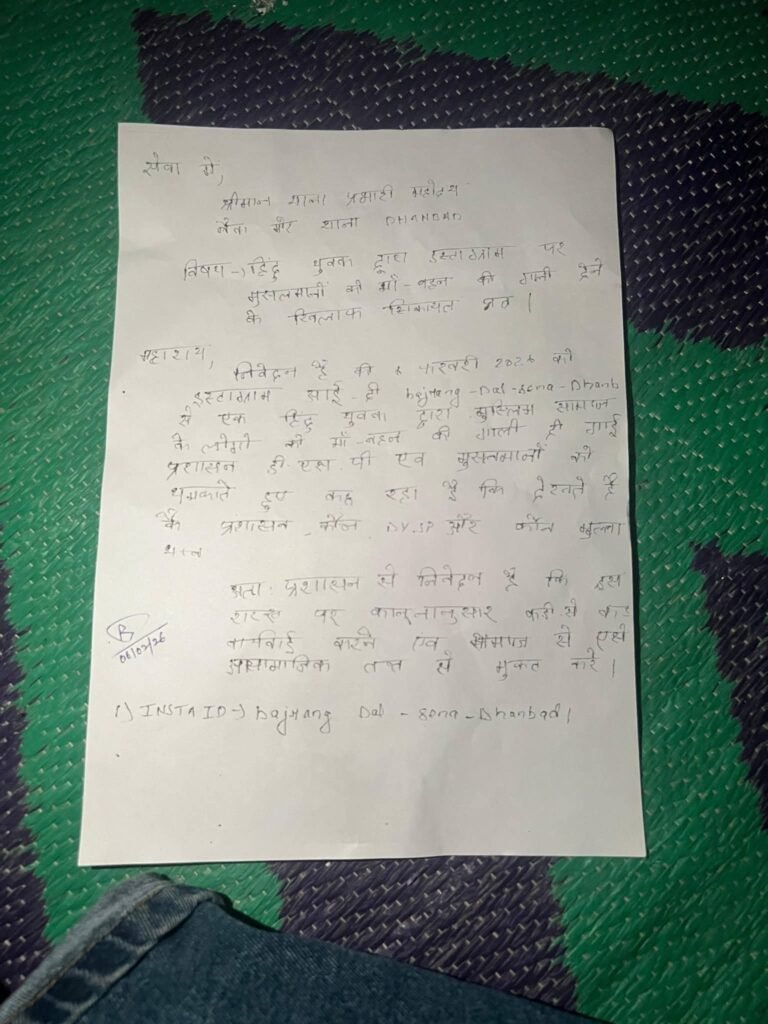 सेवा में,
श्रीमान थाना प्रभारी महोदय
बैंक मोर थाना DHANBAD
विषय → हिंदु युवक द्वारा इंस्टाग्राम पर
मुसलमानों को माँ-बहन की गाली देने
के खिलाफ शिकायत पत्र।
महाशय,
निवेदन है की 6 फरवरी 2026 को
इंस्टाग्राम आई-डी bajrang-Dal-Sena-Dhanb
से एक हिंदु युवक द्वारा मुस्लिम सामाज
के लोगो को माँ-बहन की गाली दी गाई
प्रशासन डी.एस.पी एवं मुसलमानों को
धमकाते हुए कह रहा है कि देखते है
कै प्रशासन कौन DY.SP और कौन मुल्ला
अता: प्रशासन से निवेदन है कि इस
शख्स पर कानुनानुसार कड़ी से कड़
कार्वाई करने एवं सामाज से एसे
असामाजिक तत्व से मुक्त करे।
06/02/26
1) INSTA ID → bajrang Dal - Sena - Dhanbad।